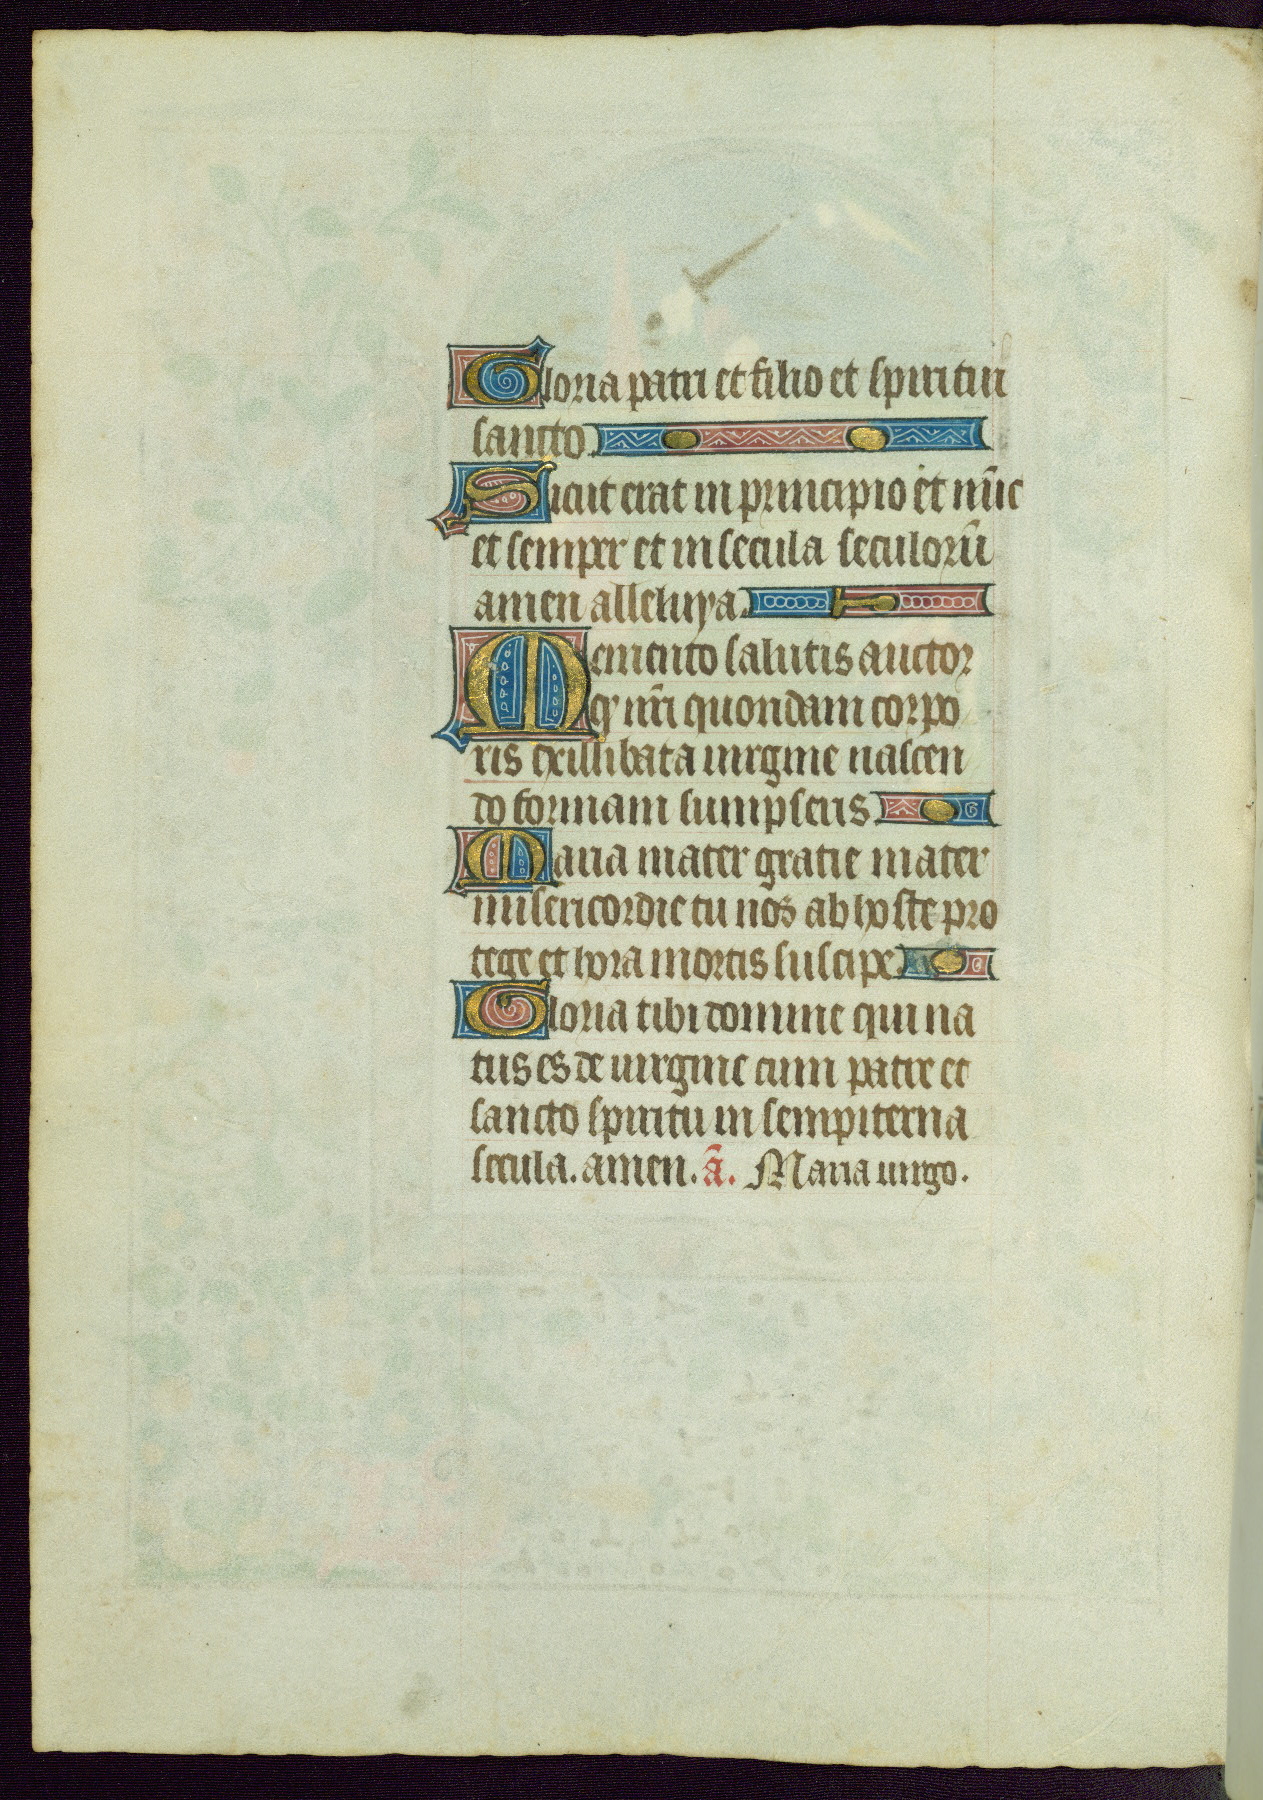 Gloria patri et filio et spiritui
sancto.
Sicut erat in principio et nūc
et semper et in secula seculorū
amen alleluya.
Memento salutis auctor
qꝰ nr̄i quondam corpo
ris exillibata uirgine nascen
do formam sumpseris.
Maria mater gratie mater
misericordie tu nos ab hoste pro
tege et hora mortis suscipe.
Gloria tibi domine qui na
tus es de uirgine cum patre et
sancto spiritu in sempiterna
secula. amen. ā. Maria uirgo.